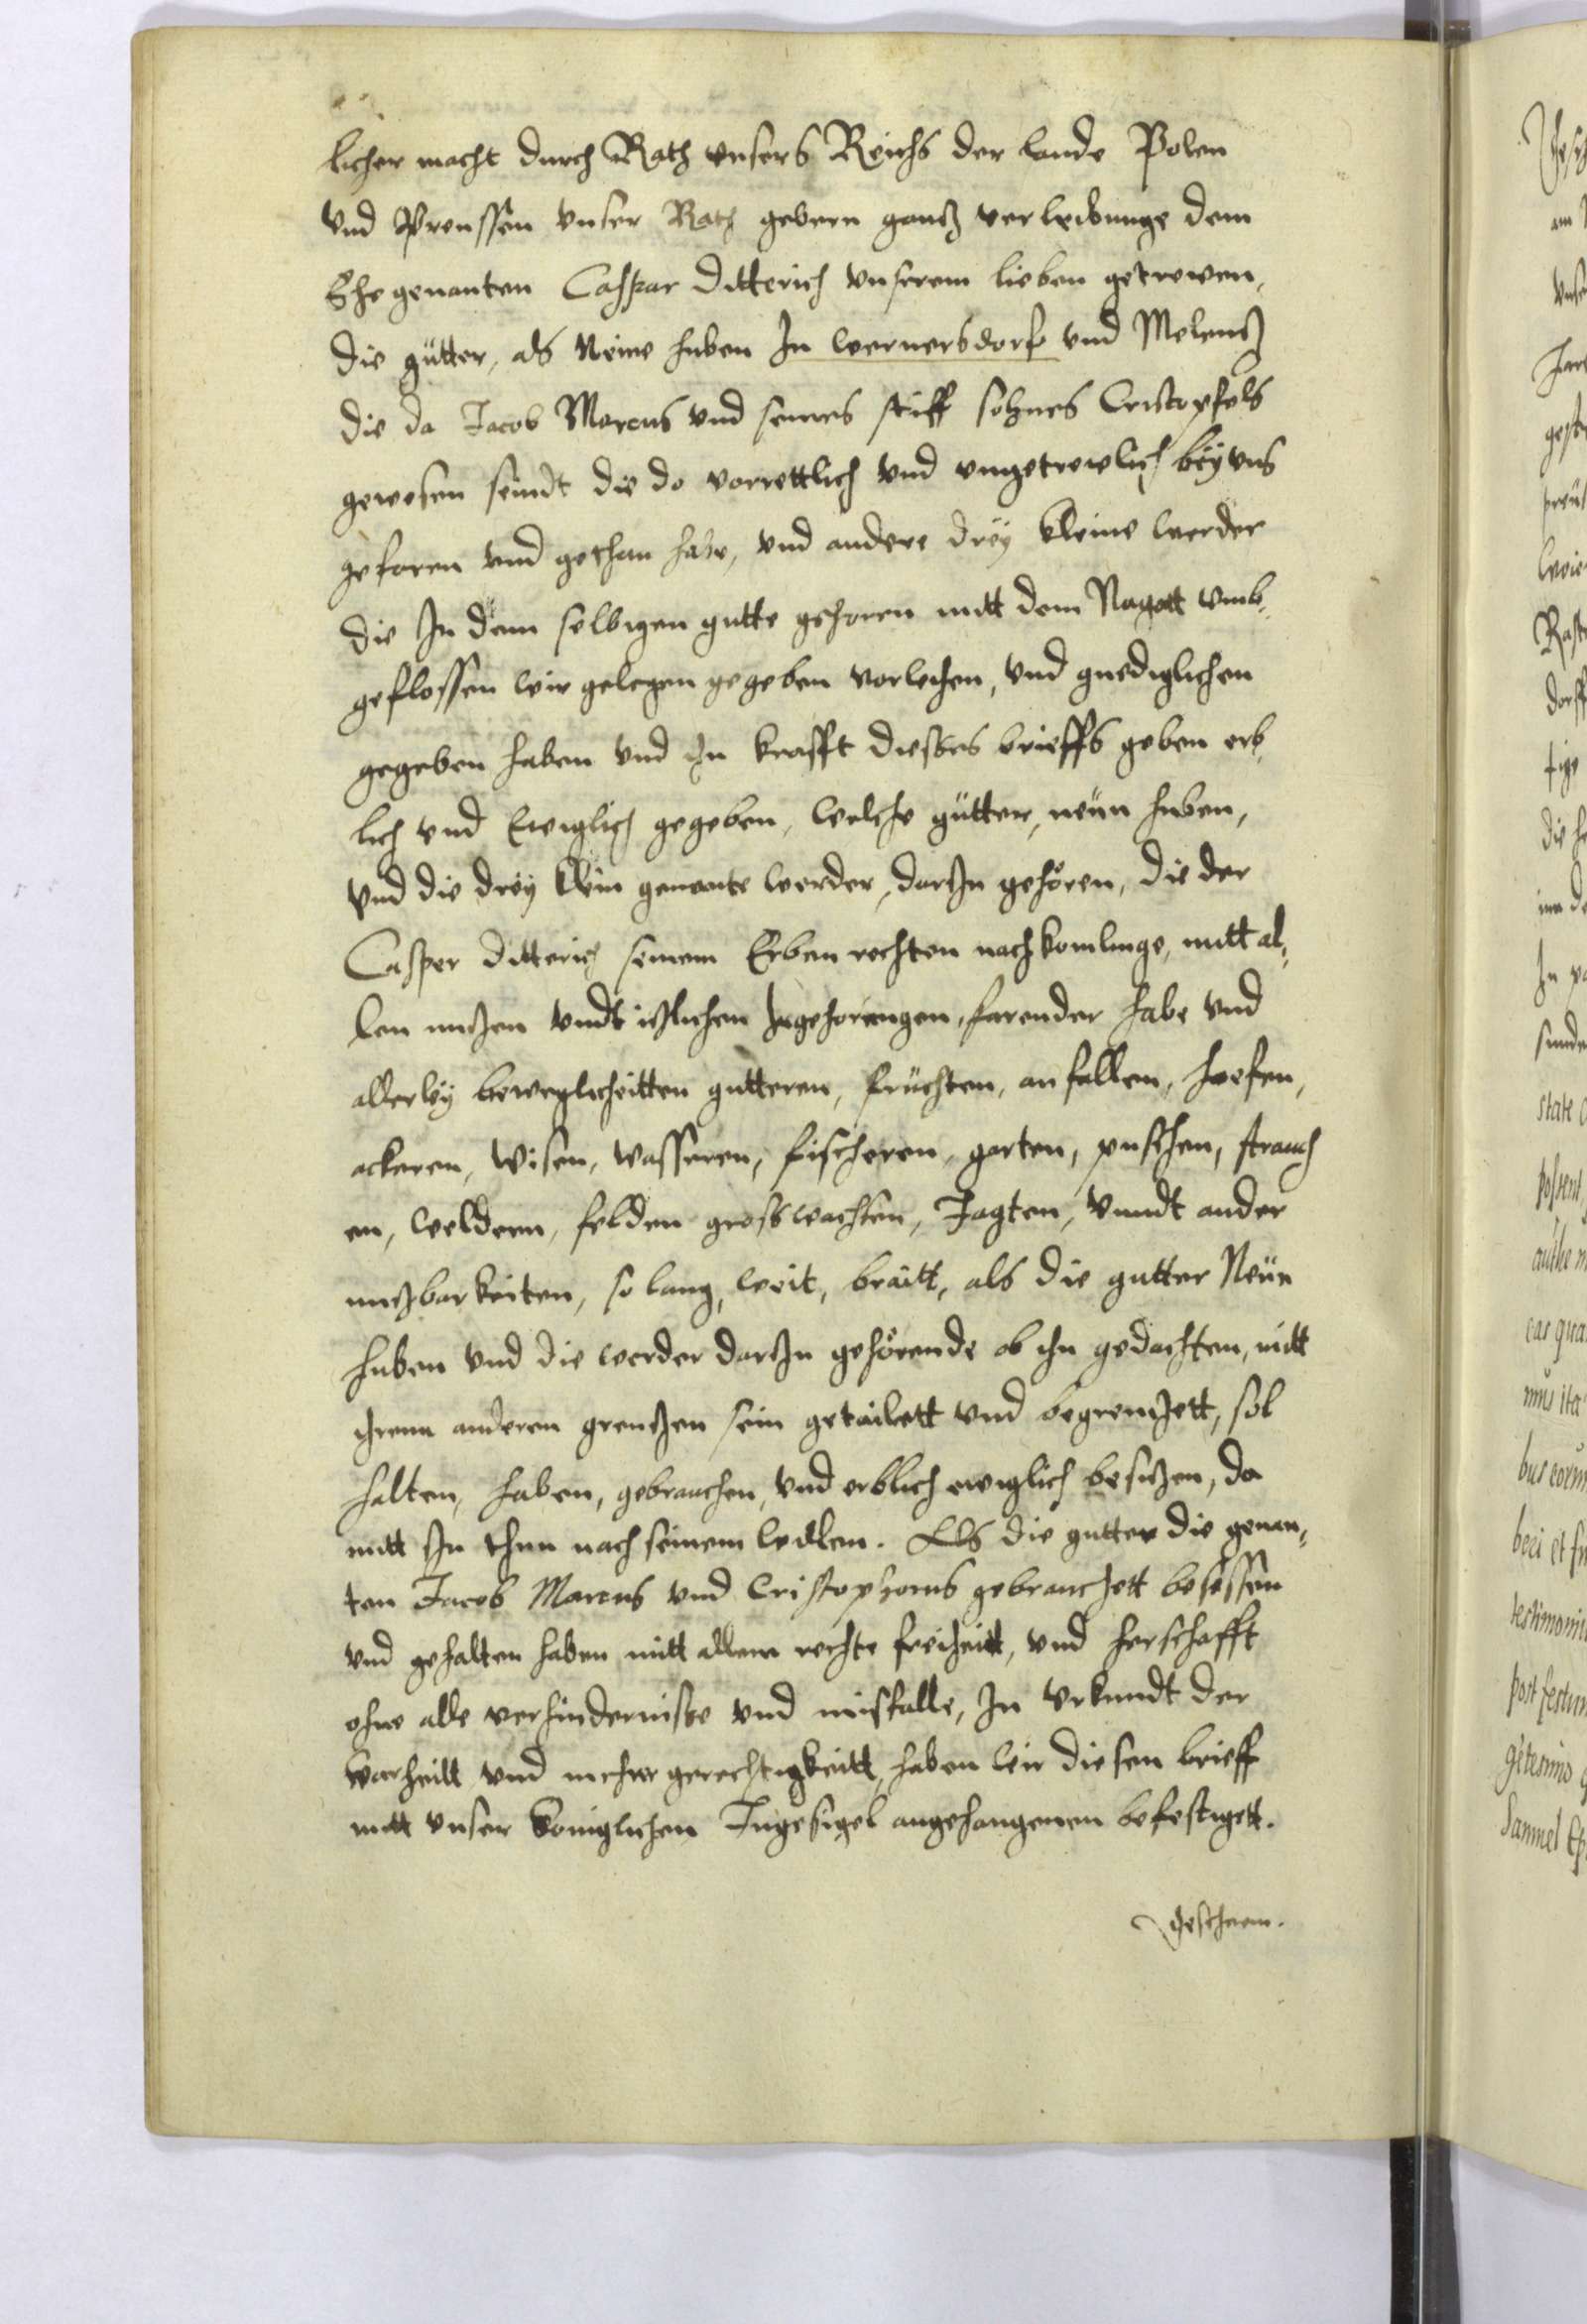 licher macht durch Rath vnsers Reichs der lande Polen
vnd Preussen vnser Rath gebern gantz verleibunge dem
Ehegenanten Caspar Ditterich vnserem lieben getrewen,
die gütter, als Neine huben In wernersdorf vnd Melentz
die da Jacob Marcus vnd seines stiff sohnes Cristopfels
gewesen seindt die do vorrettlich vnd vngetrewlich bey vns
gefaren vnd gethan habe, vnd andere drey kleine werder
die In dem selbigen gutte gehoren mitt dem Nagott vmb,
geflossen wir gelegen gegeben vorlehen, vnd gnediglichen
gegeben haben vnd in krafft dieses brieffs geben erb,
lich vnd Ewiglich gegeben, welche gütter, neün huben,
vnd die drey klein genante werder, darzu gehören, die der
Casper Ditterich seinem Erben rechten nachkomlinge, mitt al,
len nutzen vndt itzlichen zugehorungen, farender habe vnd
allerley beweglicheitten gutteren, früchten, anfallen, hoefen,
ackeren, Wisen, Wasseren, fischeren, garten, puschen, strauch
en, weldern, felden groswachsen, Jagten, vnndt ander
nutzbarkeiten, so lang, weit, braitt, als die gutter Neün
huben vnd die werder darzu gehörende ob ihn gedachten, mitt
ihrenn anderen grentzen sein getailett vnd begrentzett, sol
halten, haben, gebrauchen, vnd erblich ewiglich besitzen, da
mitt zu thun nach seinem willen. Als die gutter die genan,
ten Jacob Marcus vnd Cristophorus gebrauchett besessen
vnd gehalten haben mitt allem rechte freiheitt, vnd herschafft
ohne alle verhindernisse vnd misfalle, In Vrkundt der
warheitt vnd mehrer gerechtigkeitt, haben wir diesen brieff
mitt vnser königlichen Ingesigel angehangenen befestigett.
Geschenn.